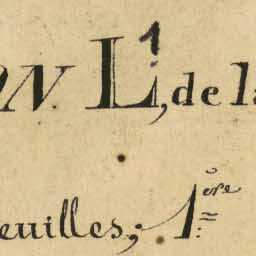 ON. L¹, de la
euilles; 1ère